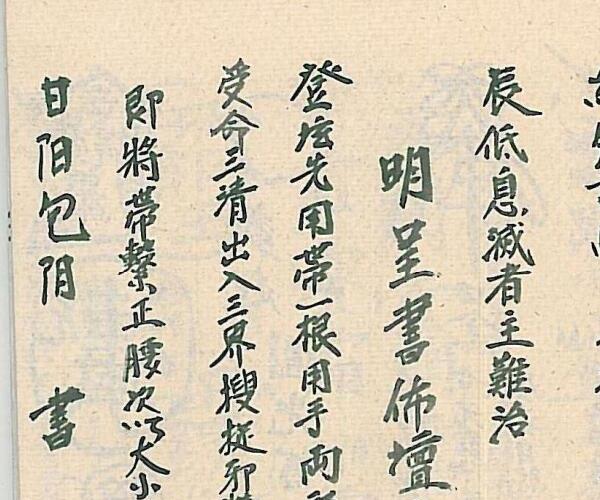 辰低息滅者主難治
明呈書佈壇
登坛先用帶一根用手両
受命三清出入三界搜捉邪
即將帶繫正腰次以大小
甘阳包阴 書